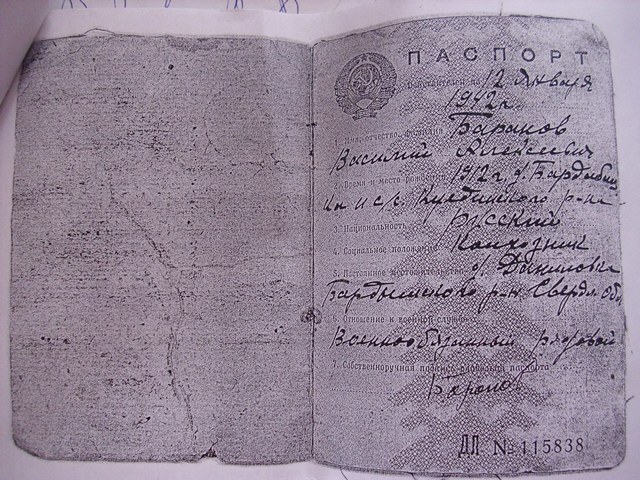 ПАСПОРТ
12 Января
1942 г.
1. Имя, отчество, фамилия Баранов
Василий Алексеевич
2. Время и место рождения 1912 г. д.
р-на
3. Национальность русский
4. Социальное положение Колхозник
5. Постоянное местожительство д. Даниловка
р-н Свердл. обл.
6. Отношение к военной службе
Военнообязанный рядовой
7. Собственноручная подпись владельца паспорта
ДЛ № 115838